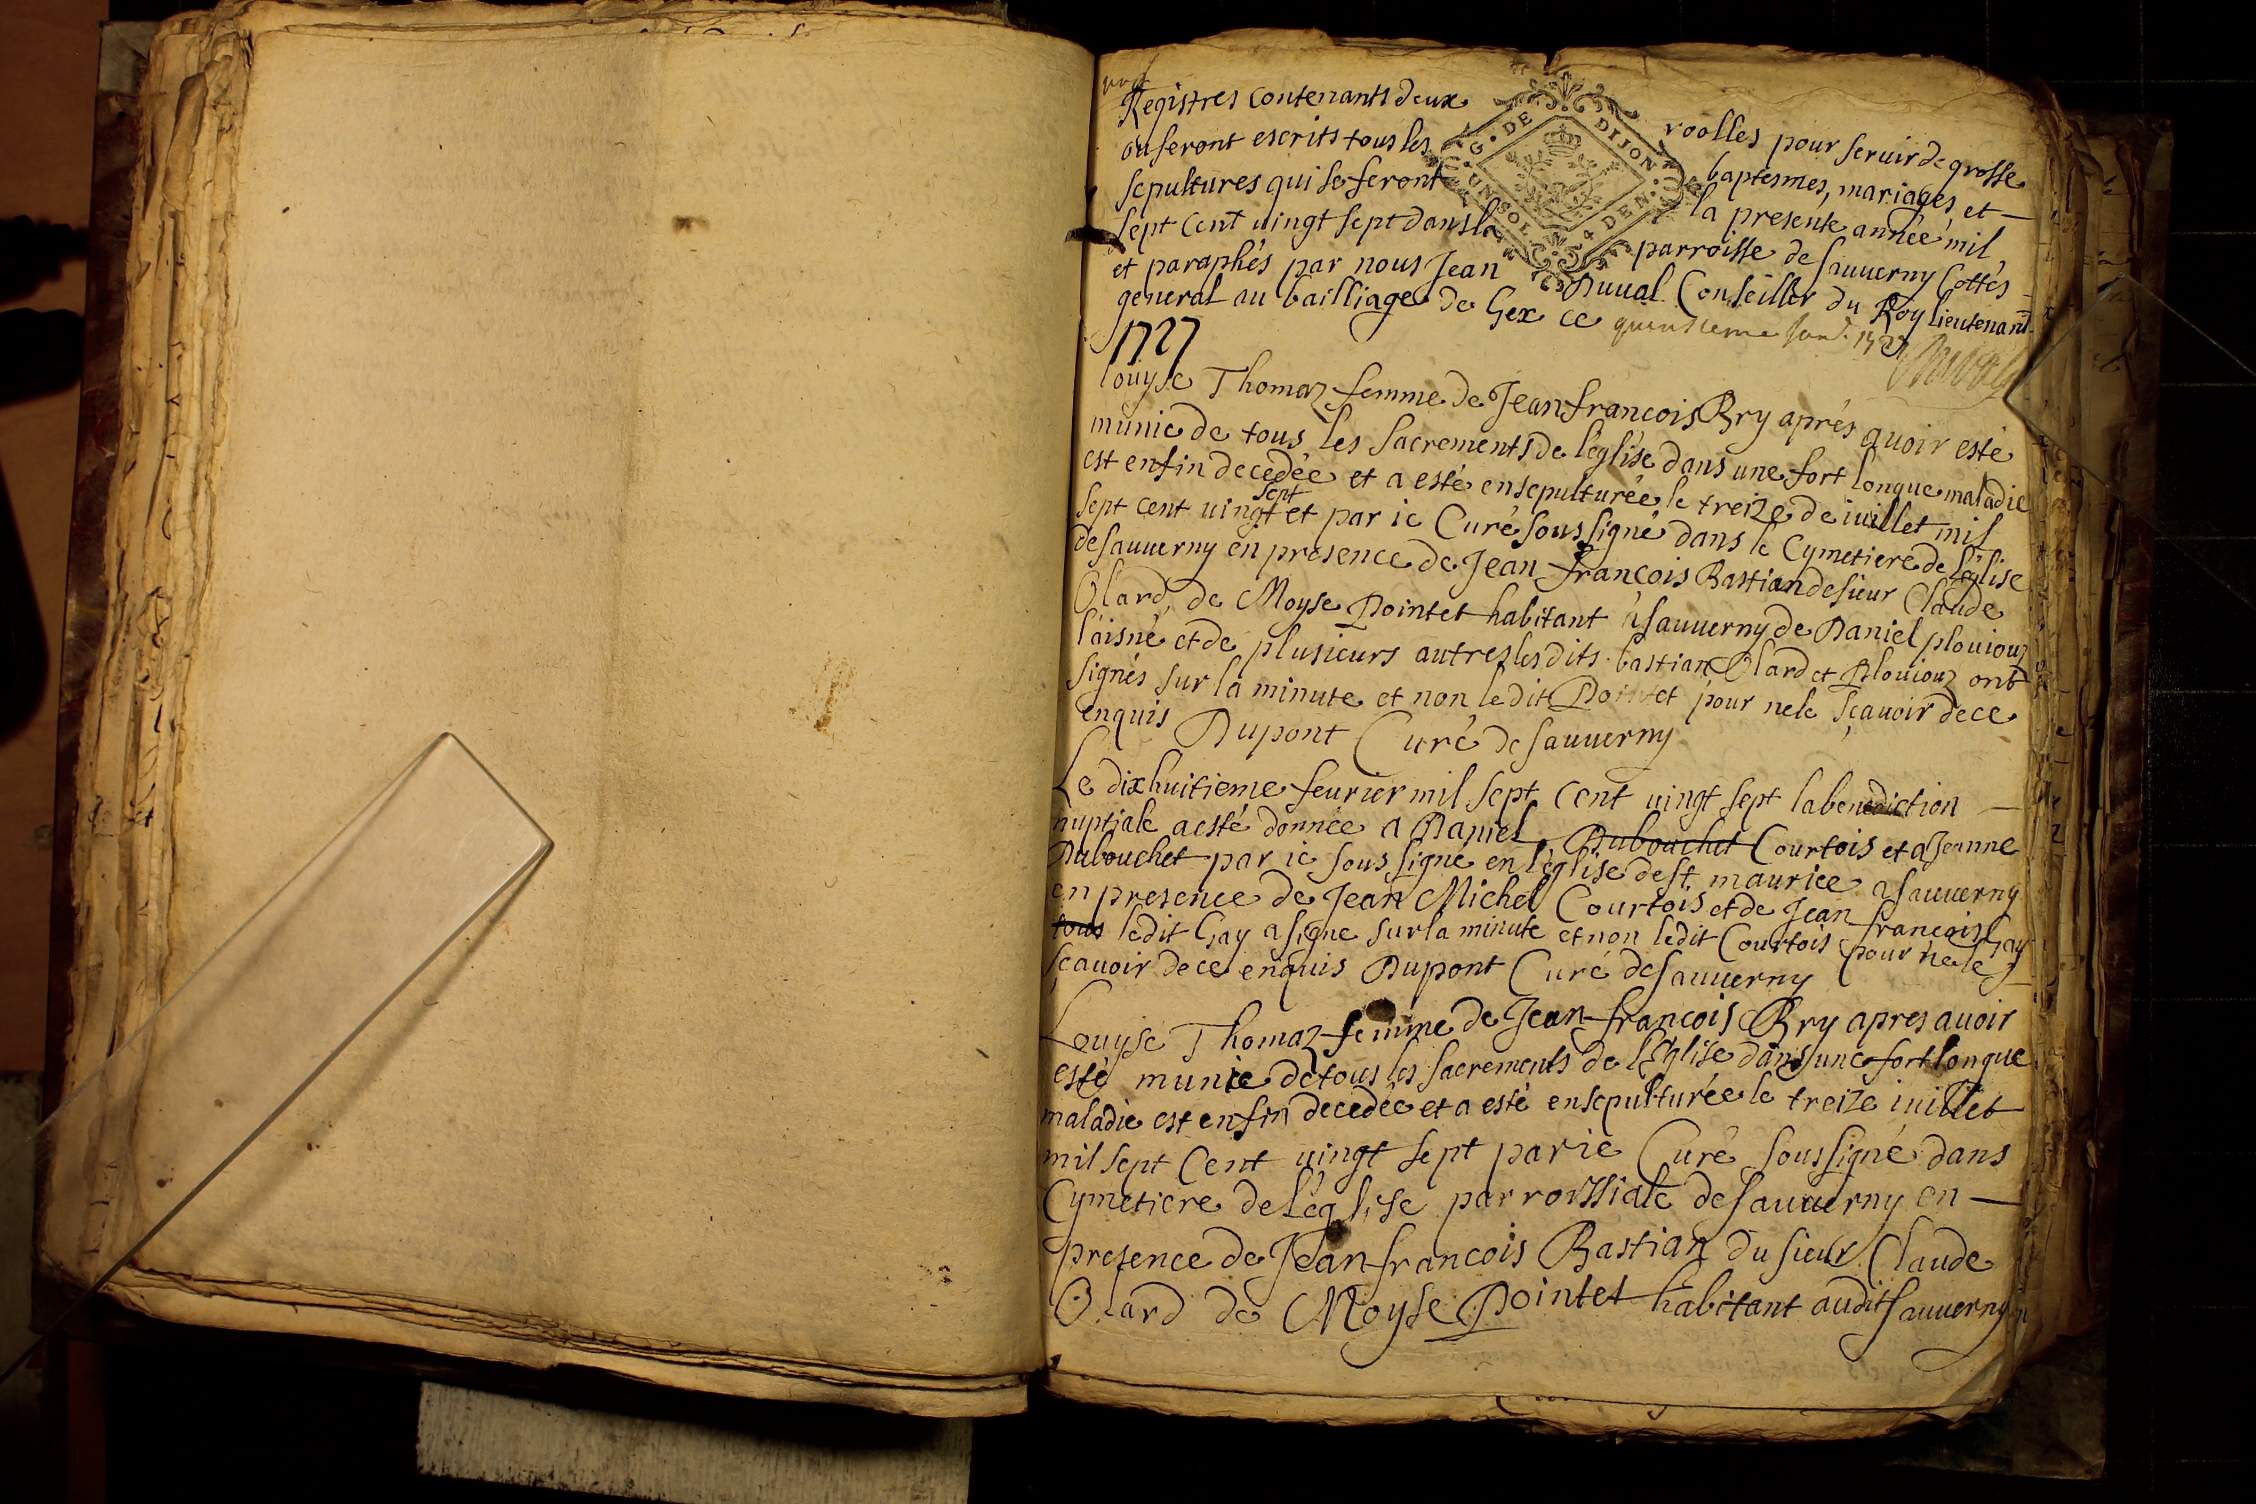 Registres contenants deux roolles pour servir de grosse
ou seront escrits tous les baptesmes, mariages, et
sepultures qui se feront la presente année mil
sept cent vingt sept dans la parroisse de sauverny Cottés
et paraphés par nous Jean Duval Conseiller du Roy lieutenant
general au bailliage de Gex ce quinsieme Janv. 1727
G. DE DIJON
UN SOL 4 DEN.
Duval
1727
louyse Thomaz femme de Jean francois Bry aprés avoir esté
munie de tous les sacrements de l'eglise dans une fort longue maladie
est enfin decedée et a esté ensepulturée le treize de iuillet mil
sept cent vingt sept et par ie Curé soussigné dans le Cymetiere de l'eglise
de sauverny en presence de Jean francois Bastian de sieur Claude
Olard, de Moyse Pointet habitant à sauverny de Daniel plouiouz
l'aisné et de plusieurs autres lesdits bastian Olard et Plouiouz ont
signés sur la minute et non ledit Pointet pour ne le sçavoir de ce
enquis Dupont Curé de sauverny
Le dixhuitieme feurier mil sept cent vingt sept la benediction
nuptiale a esté donnée a Daniel Dubouchet Courtois et a Jeanne
Dubouchet par ie soussigné en l'eglise de st maurice a sauverny
en presence de Jean Michel Courtois et de Jean francois Gay
tous ledit Gay a signe sur la minute et non ledit Courtois pour ne le
sçavoir de ce enquis Dupont Curé de sauverny
Louyse Thomaz femme de Jean francois Bry apres avoir
esté munie de tous les sacrements de l'Eglise dans une fort longue
maladie est enfin decedée et a esté ensepulturée le treize iuillet
mil sept Cent vingt sept par ie Curé soussigné dans
Cymetiere de l'eglise parroissiale de sauverny en
presence de Jean francois Bastian du sieur Claude
Olard de Moyse Pointet habitant audit sauverny